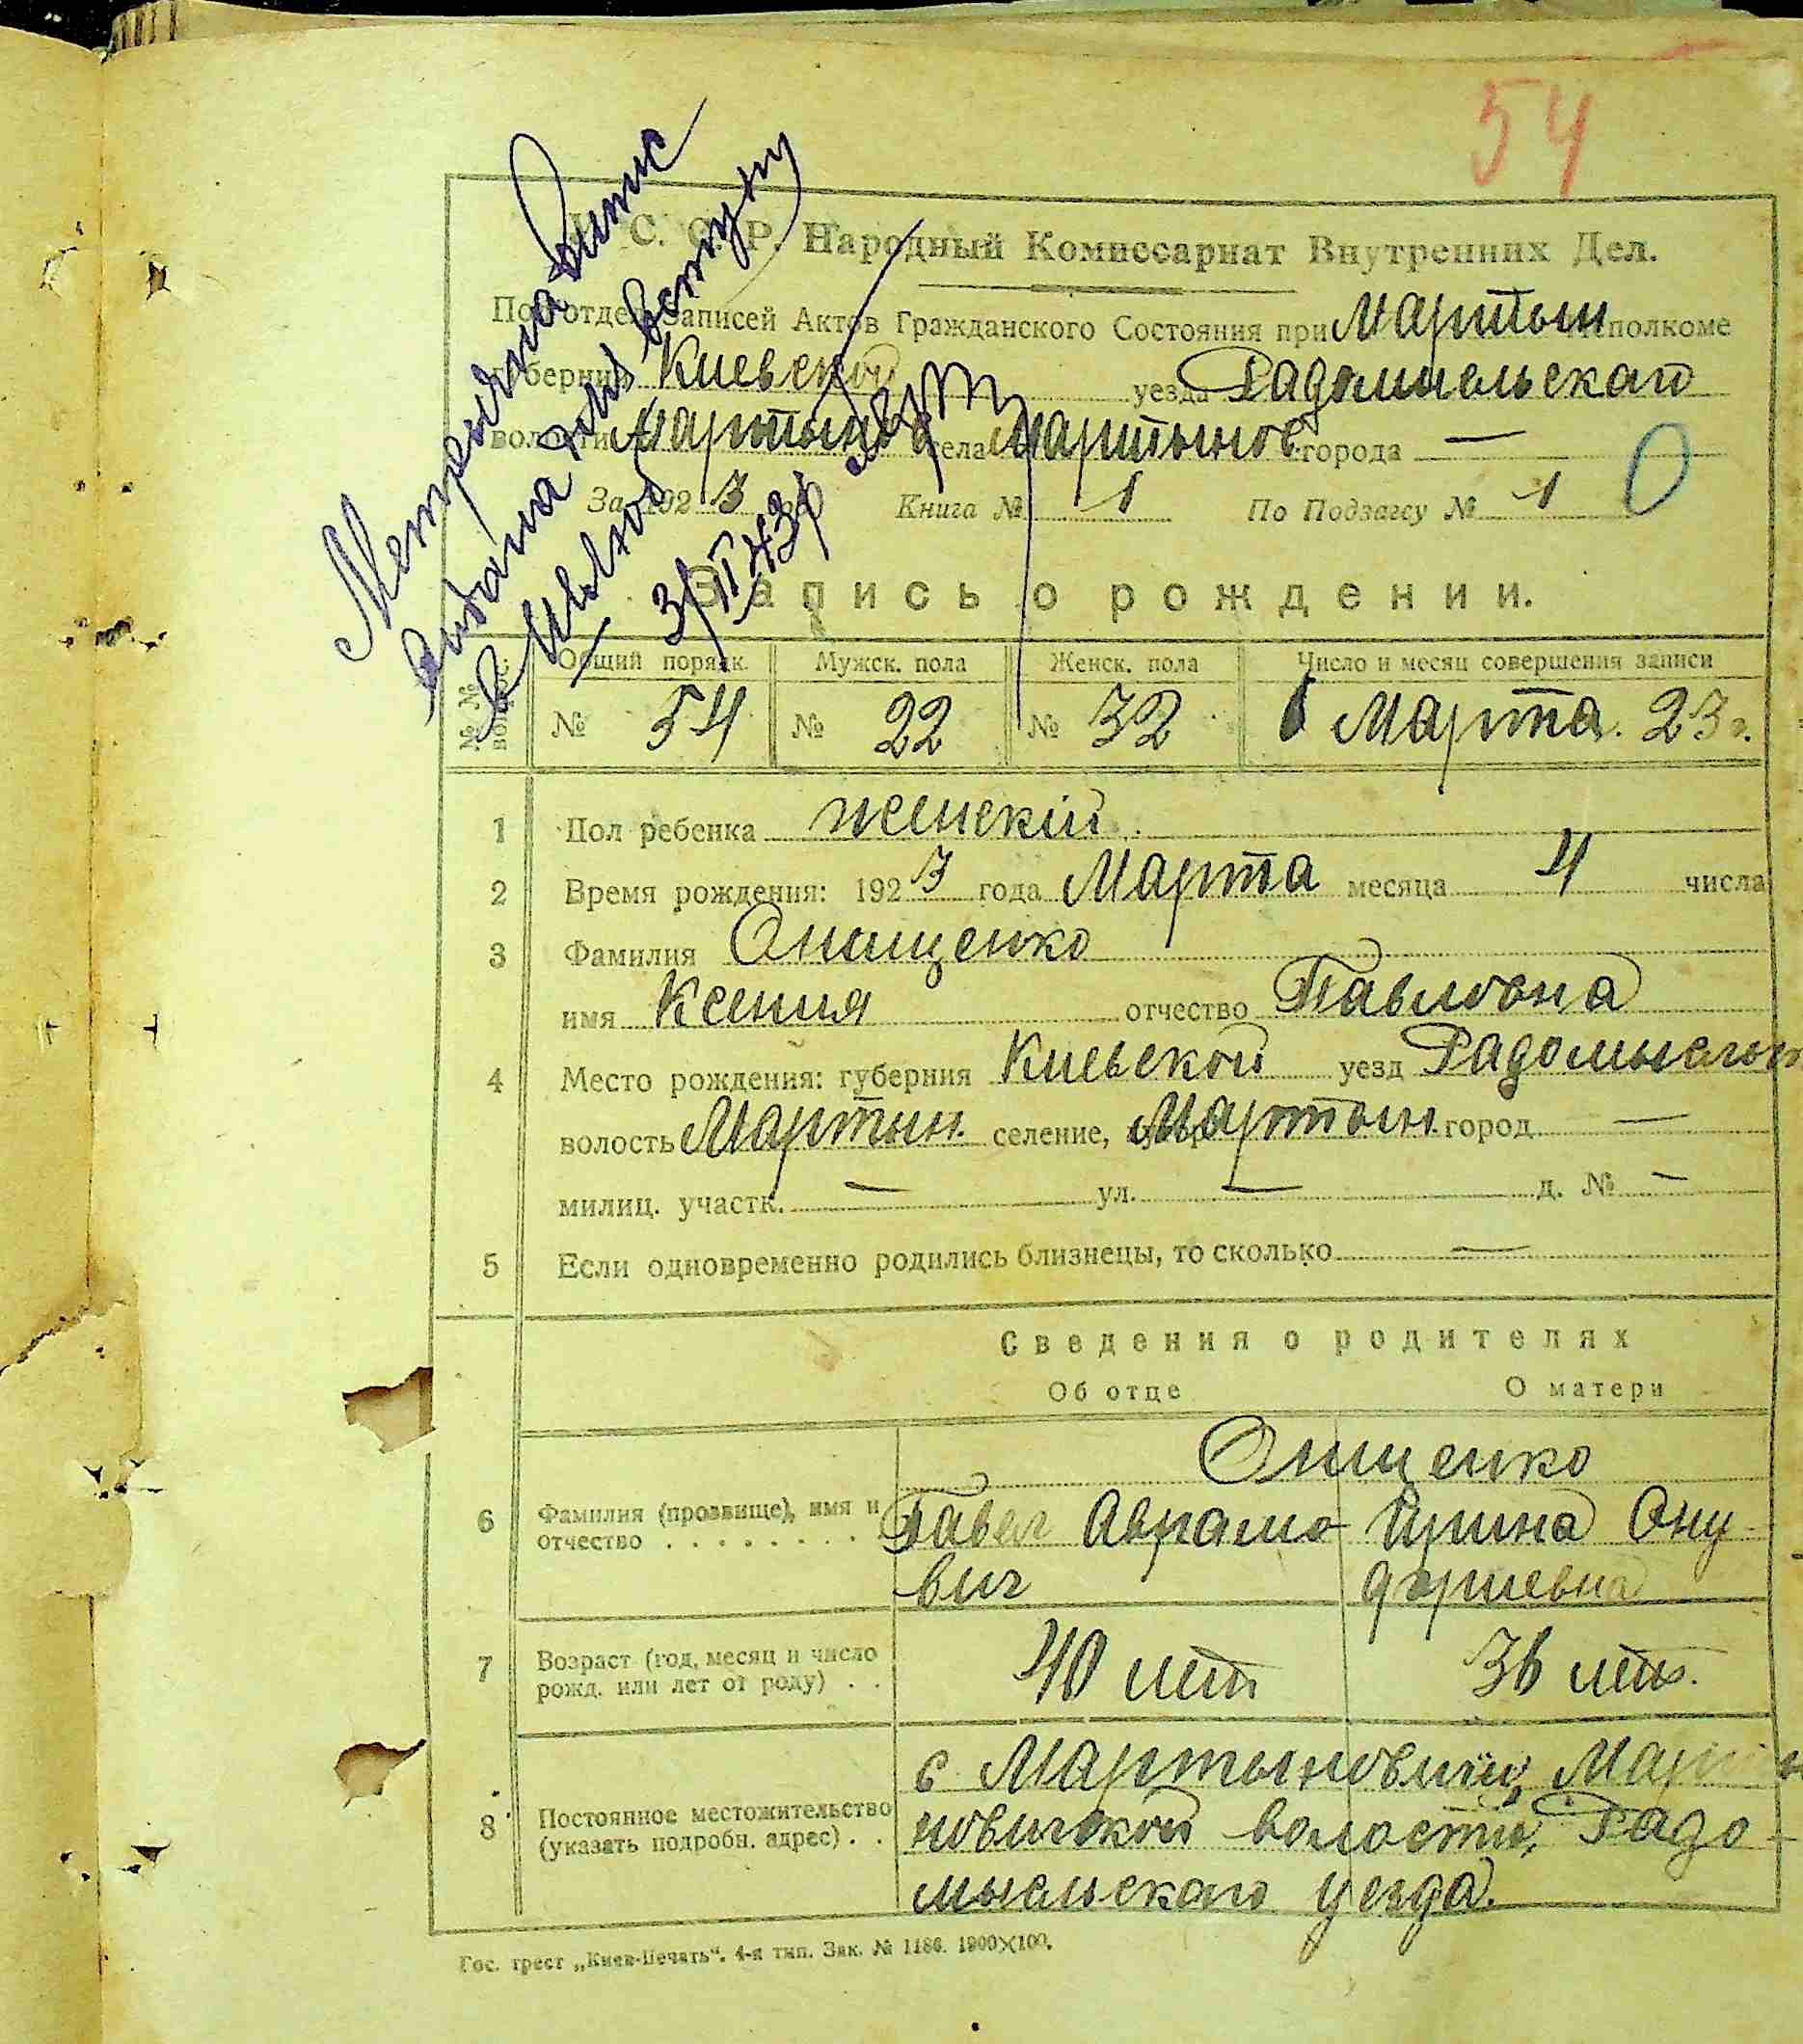 54
У. С. С. Р. Народный Комиссариат Внутренних Дел.
Подотдел Записей Актов Гражданского Состояния при Мартын исполкоме
губернии Киевской уезда Радомысльскаго
волости Мартынов села Мартынов города —
За 1923 Книга № 1 По Подзагсу № 1
0
Запись о рождении.
№ № вопрос.
Общий порядк. Мужск. пола Женск. пола Число и месяц совершения записи
№ 54 № 22 № 32 6 Марта. 23 г.
1 Пол ребенка женский
2 Время рождения: 1923 года Марта месяца 4 числа
3 Фамилия Онищенко
имя Ксения отчество Павловна
4 Место рождения: губерния Киевской уезд Радомысльск
волость Мартын. селение, Мартын. город —
милиц. участк. — ул. — д. № —
5 Если одновременно родились близнецы, то сколько —
Сведения о родителях
Об отце О матери
Онищенко
6 Фамилия (прозвище), имя и отчество . . . . . . . . Павел Аврамо- Ирина Ону-
вич фриевна
7 Возраст (год, месяц и число рожд. или лет от роду) . . 40 лет 36 лет.
с Мартыновичи, Марты
8 Постоянное местожительство (указать подробн. адрес) . . новичской волости, Радо-
мысльскаго уезда.
Гос. трест „Киев-Печать“. 4-я тип. Зак. № 1186. 1900×100.